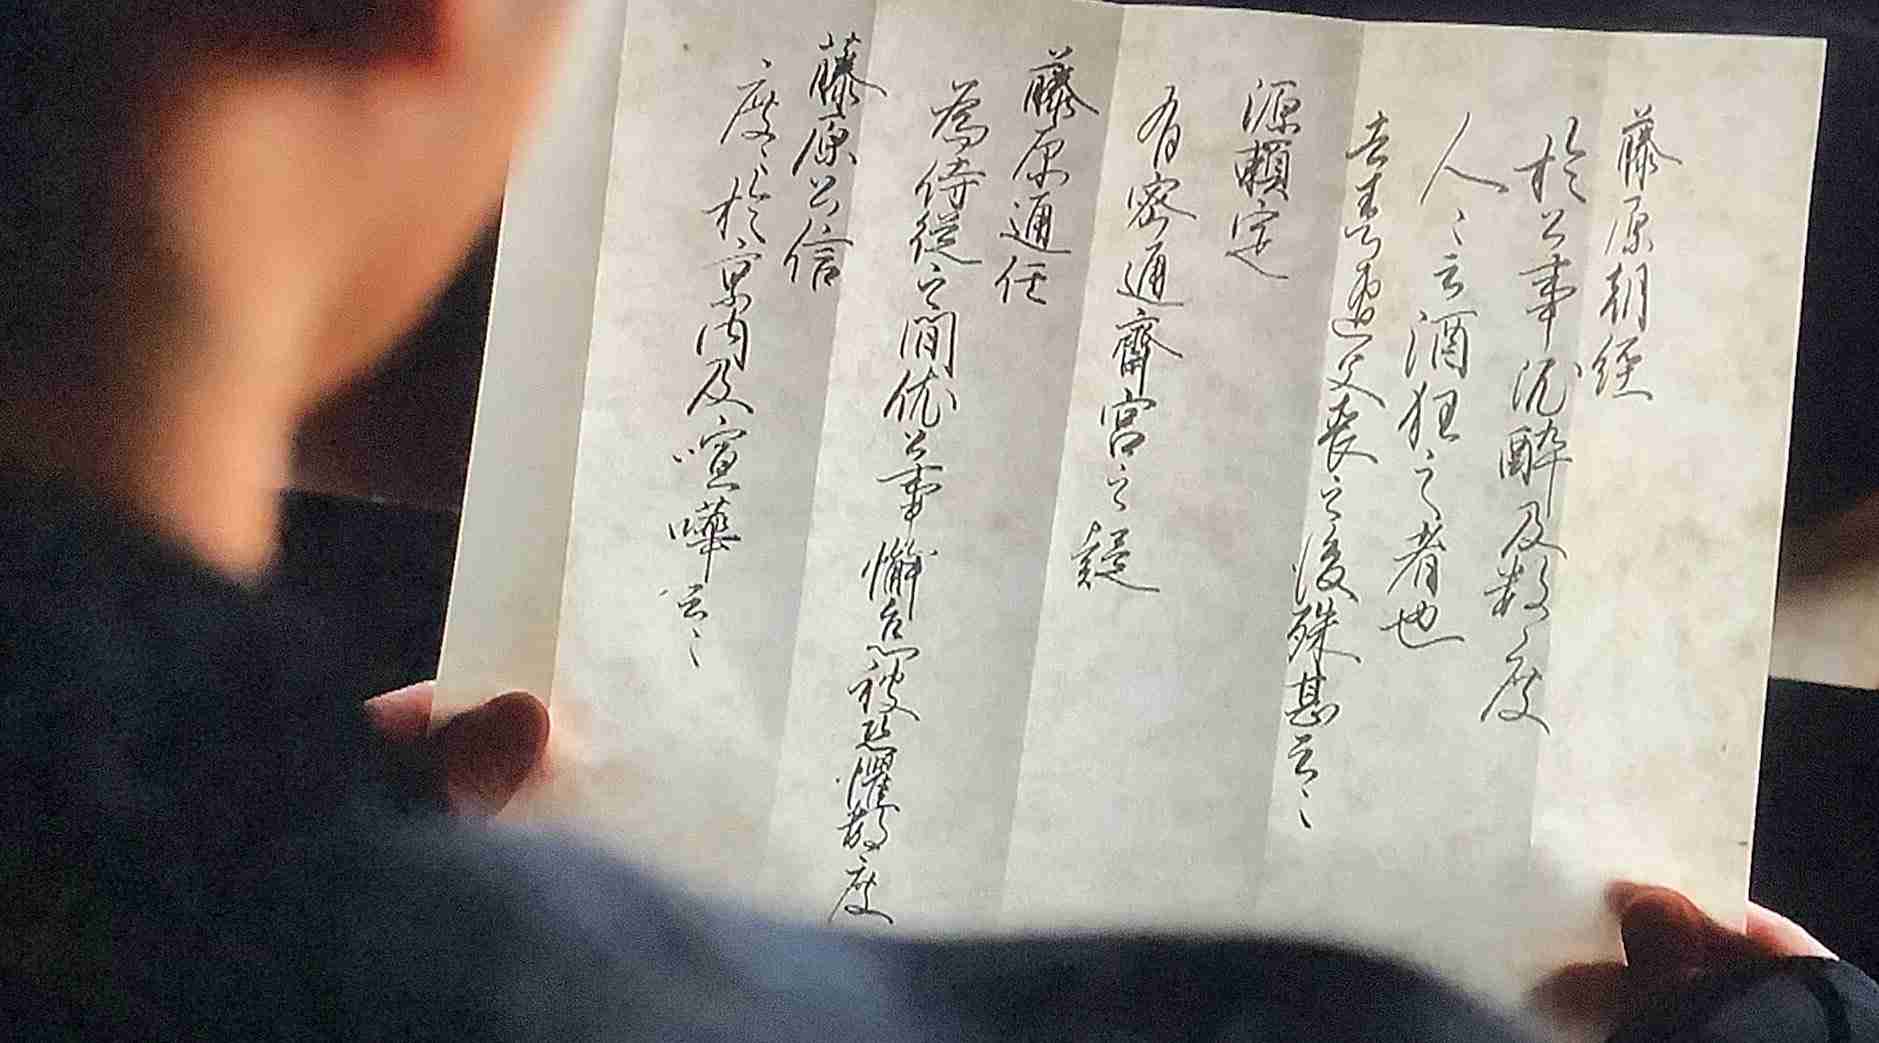 藤原朝経
於公事泥酔及数々度
人々云酒狂之者也
去春 遭父喪之後殊甚云々
源頼定
有密通齋宮之疑
藤原通任
為侍従之間依公事懈怠被恐懼数度
藤原公信
度々於京内及喧嘩云々